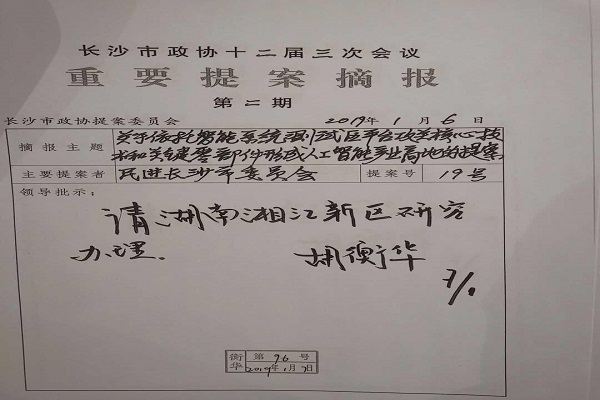 长沙市政协十二届三次会议
重要提案摘报
第二期
长沙市政协提案委员会 2019年1月6日
摘报主题 关于依托智能系统测试区平台攻关核心技
术和关键零部件形成人工智能产业高地的提案
主要提案者 民进长沙市委员会 提案号 19号
领导批示：
请湖南湘江新区研究
办理. 胡衡华
7/1
衡华 第96号
2019年1月7日